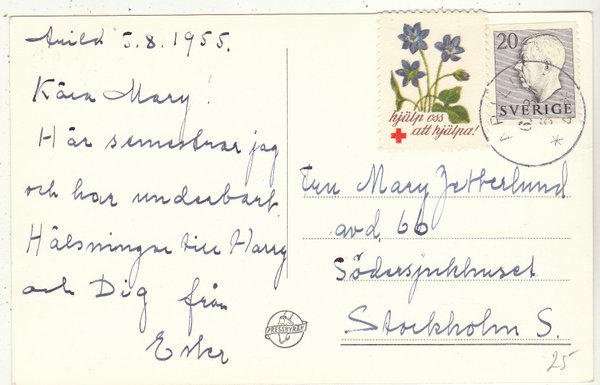 Arild 5.8.1955.
Kära Mary!
Här semestrar jag
och har underbart.
Hälsningar till Harry
och Dig från
Ester
hjälp oss
att hjälpa!
20
SVERIGE
Fru Mary Zetterlund
avd. 66
Södersjukhuset
Stockholm S.
PRESSBYRÅN
25